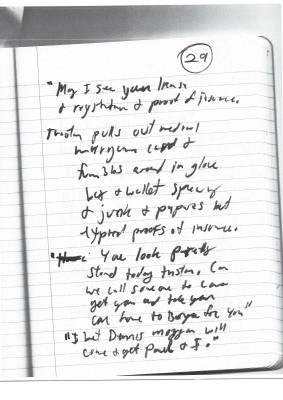 29
"May I see your license
& registration & proof of insurance.
Tristan pulls out medical
marijuana card &
fumbles around in glove
box & wallet spewing
& junk & papers but
expired proofs of insurance.
You look pretty
stoned today Tristan. Can
we call someone to come
get you and take your
car home to for you"
"I bet Dennis Morgan will
come & get Paul & I."